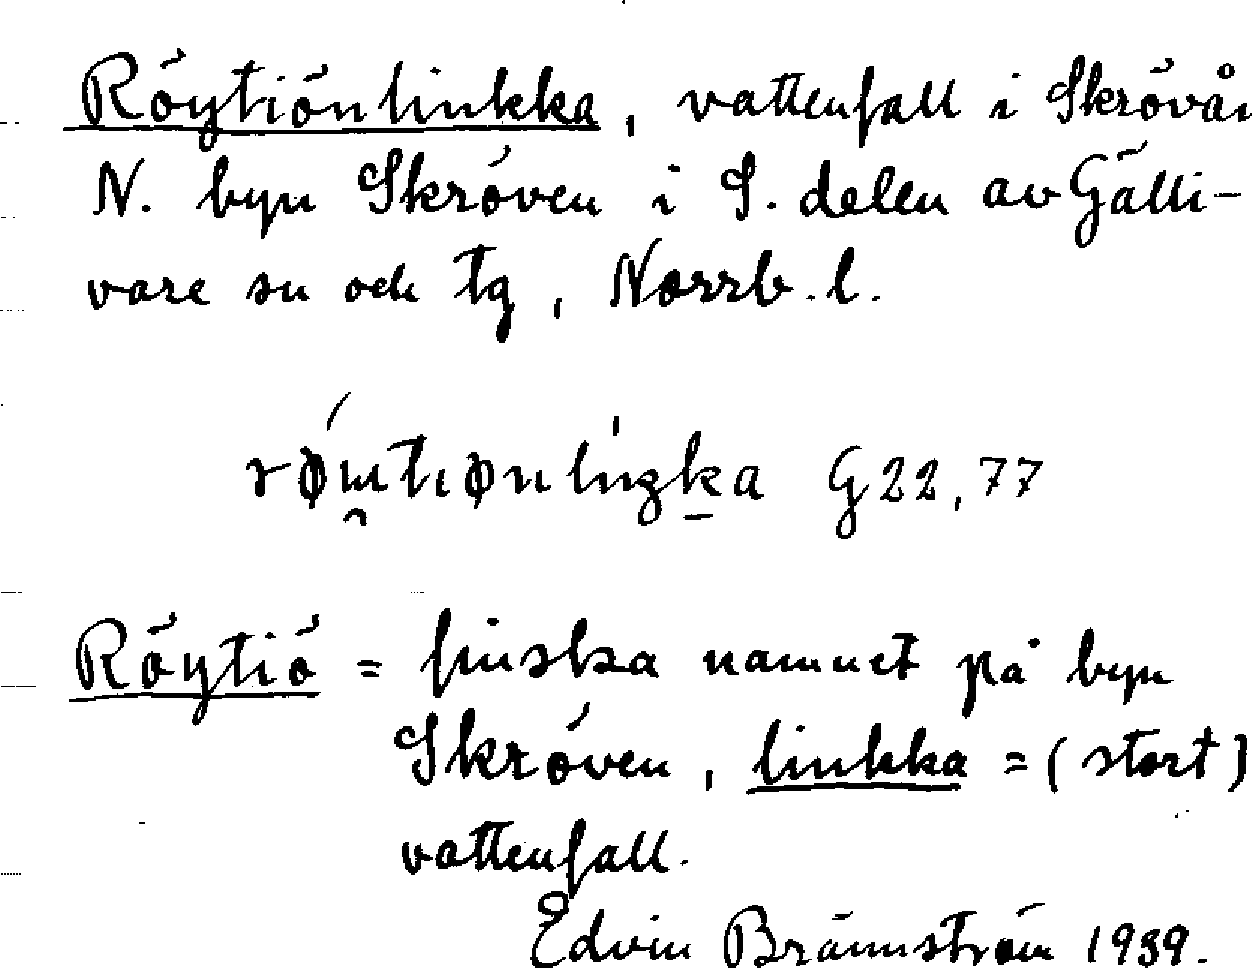 Röytiönlinkka, vattenfall i Skrövån
N. byn Skröven i S. delen av Gälli-
vare sn och tg, Norrb. l.
G 22, 77
Röytiö = finska namnet på byn
Skröven, linkka = (stort)
vattenfall.
Edvin Brännström 1939.